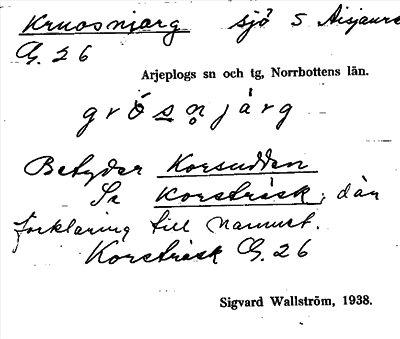 Kruosnjarg sjö S Aisjaure
G. 26
Arjeplogs sn och tg, Norrbottens län.
grö́sn̥járg
Betyder Korsudden
Se Korsträsk, där
förklaring till namnet.
Korsträsk G. 26
Sigvard Wallström, 1938.